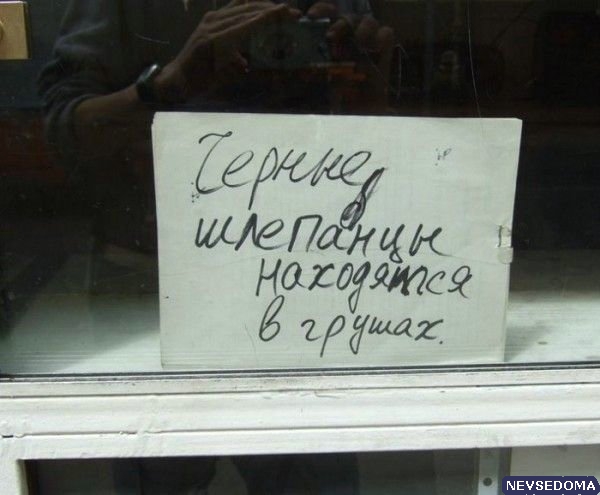 Черные
шлепанцы
находятся
в грушах.
NEVSEDOMA